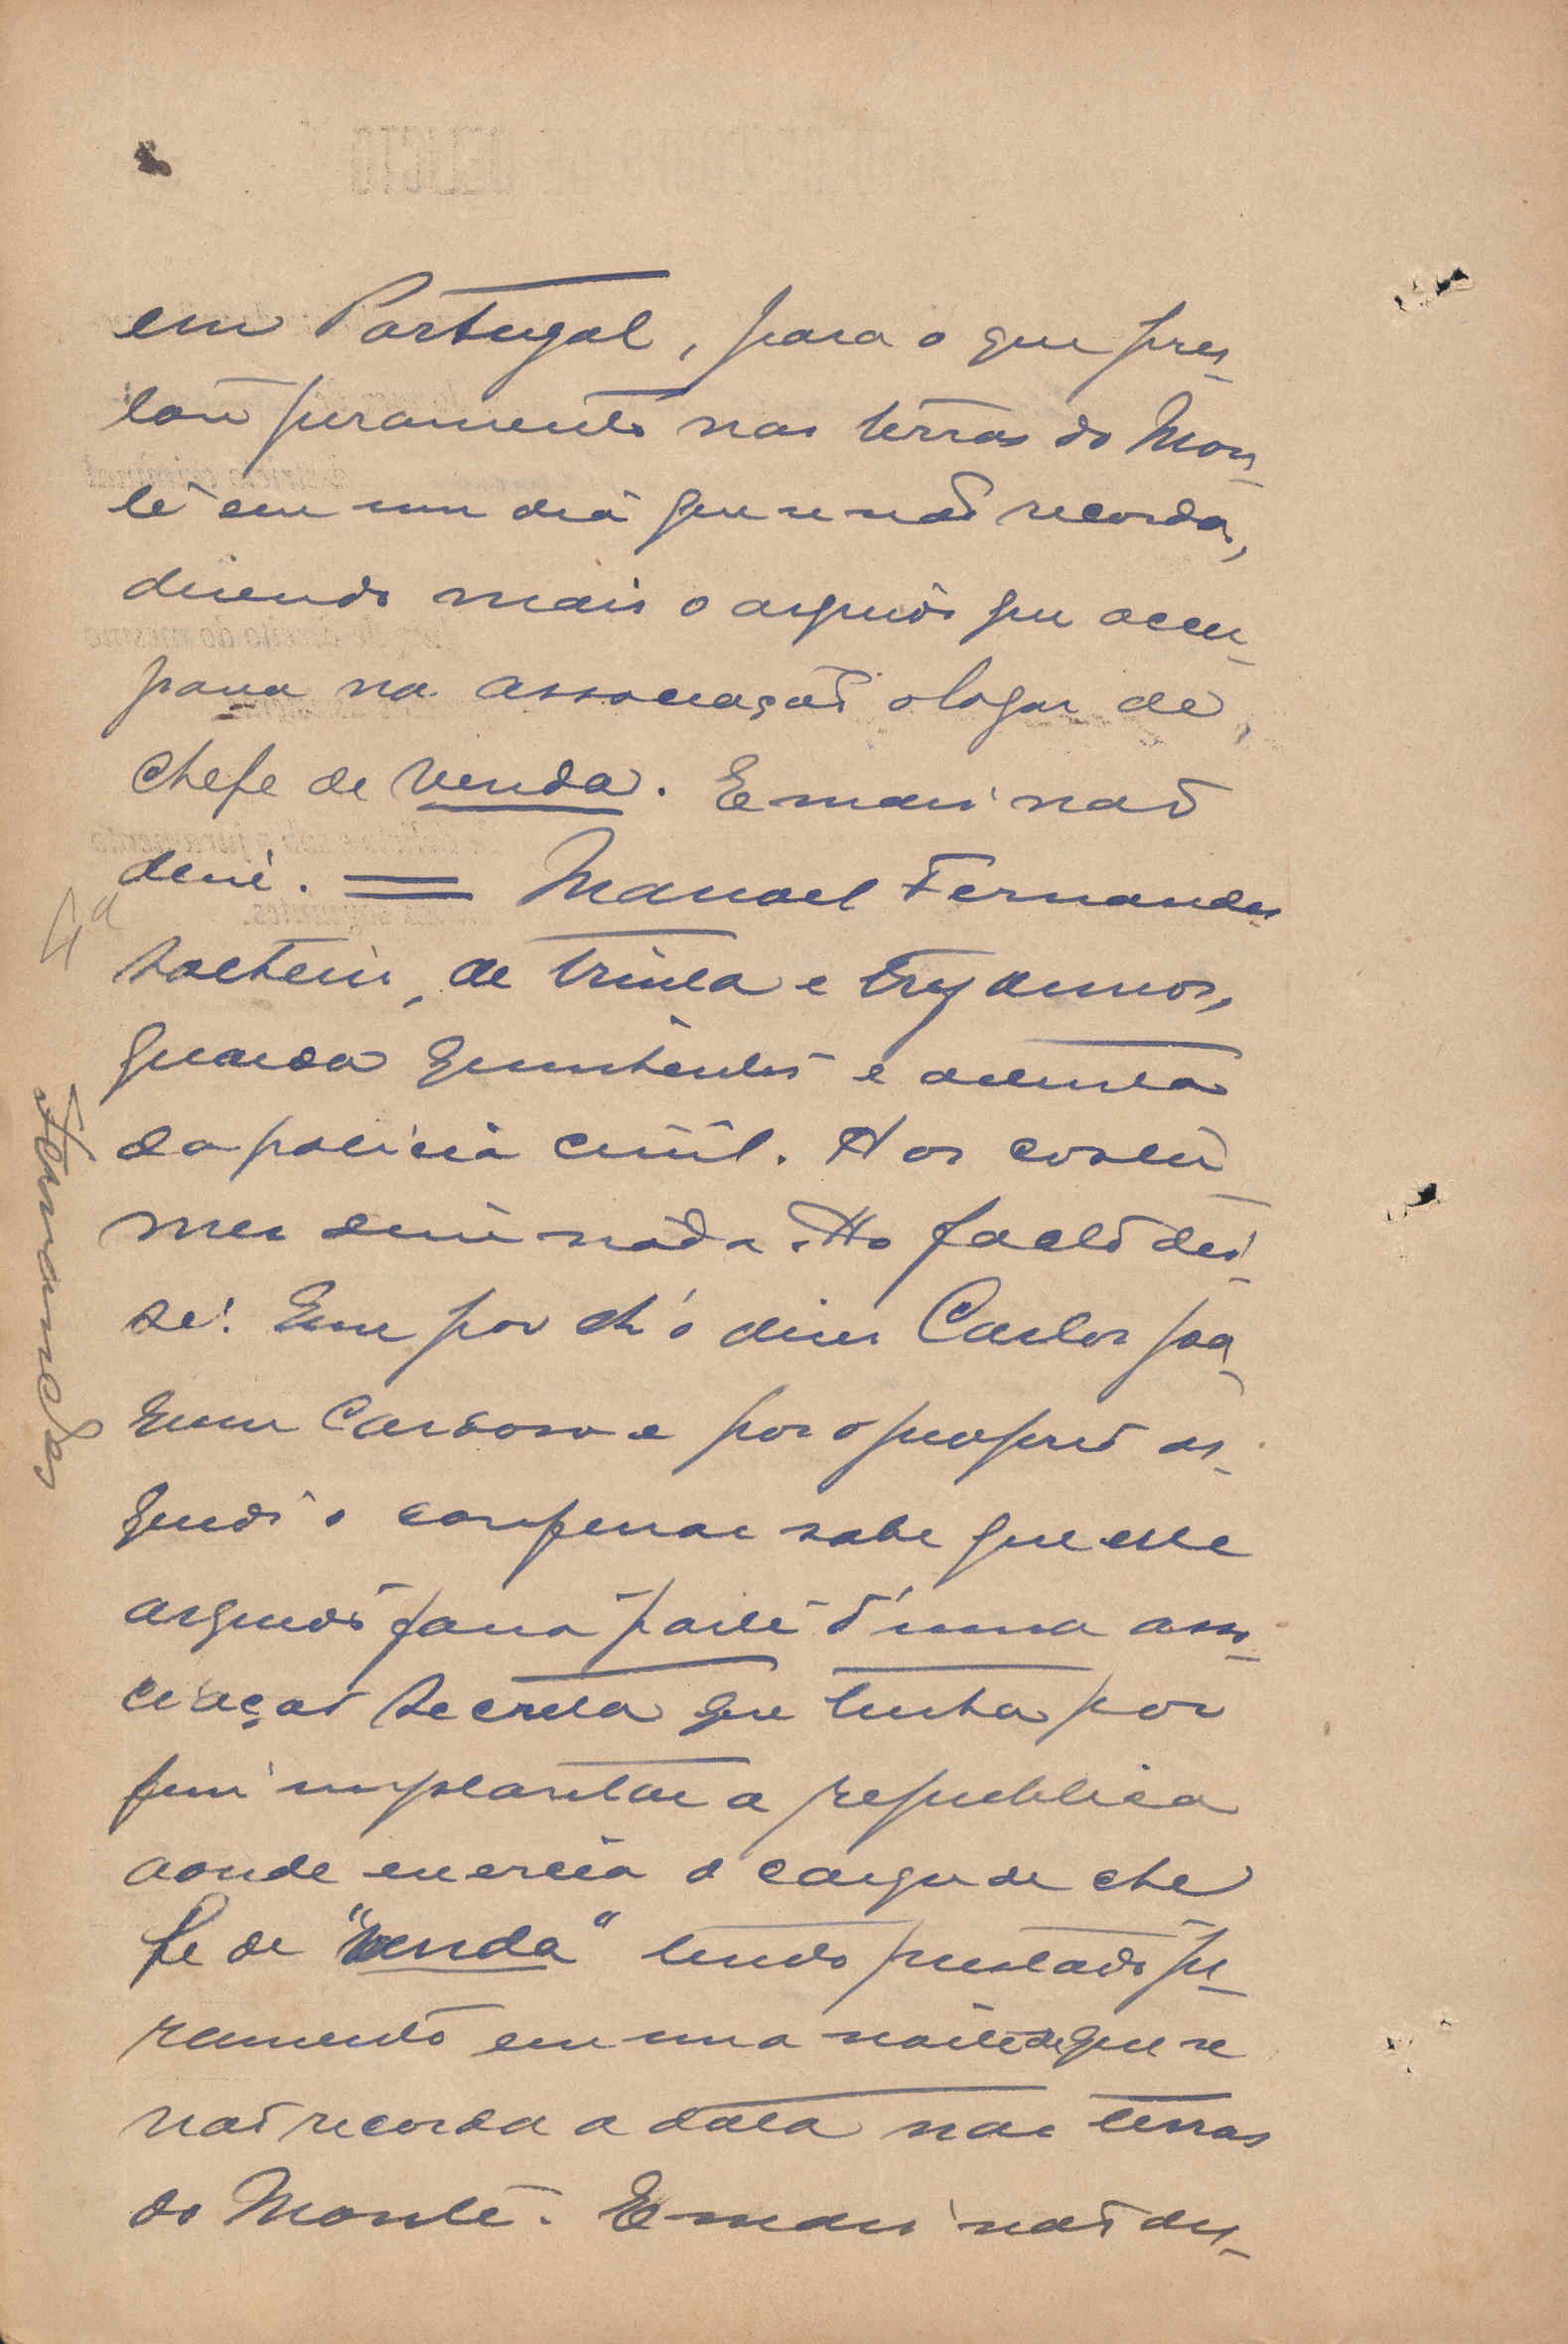 em Portugal, para o que pres-
tou juramento nas terras do Mon-
te em um dia que se não recorda,
disendo mais o arguido que occu-
pava na associação o logar de
chefe de venda. E mais não
disse. = Manoel Fernandes
4ª
solteiro, de trinta e trez annos,
guarda quinhentos e oitenta
da policia civil. Aos costu-
mes disse nada. Ao facto dis-
se: Que por lh'o diser Carlos Joa-
quim Cardoso e por o proprio ar-
guido o confessar sabe que este
arguido fazia parte d'uma asso-
ciação secreta que tinha por
fim implantar a republica
aonde exercia o cargo de che
fe de "venda" tendo prestado ju-
ramento em uma noite de que se
não recorda a data nas terras
do Monte. E mais não dis-
Fernandes